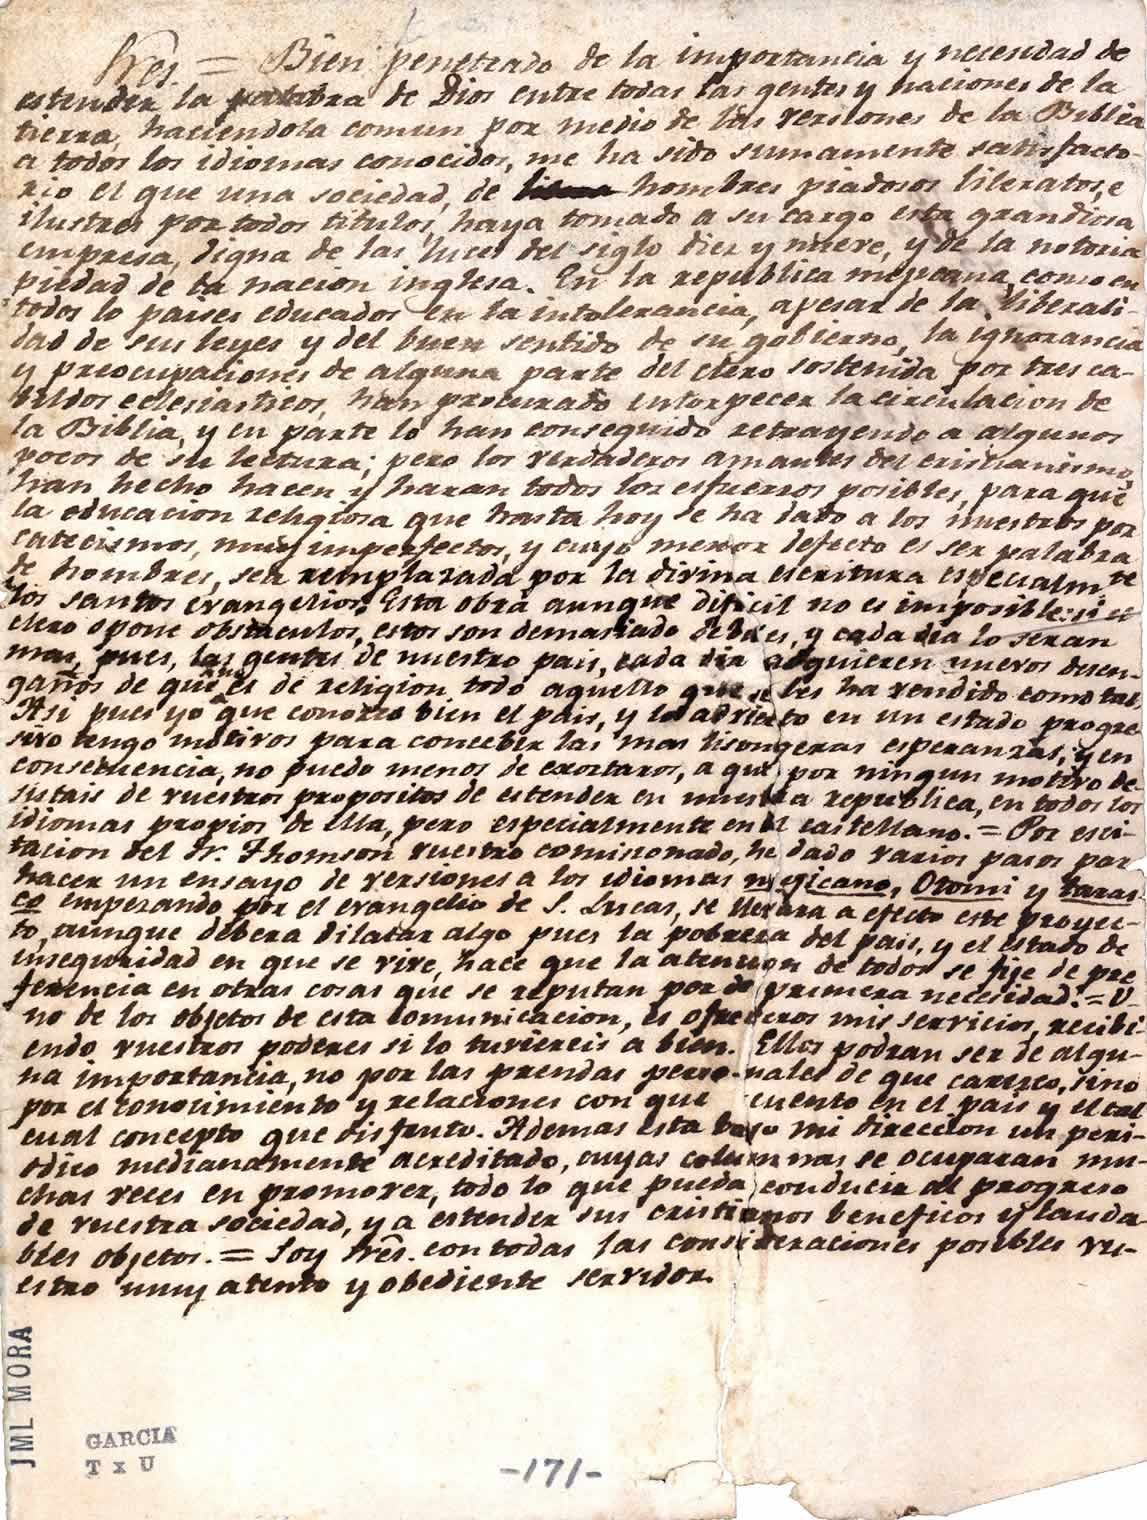 Sres. = Bien penetrado de la importancia y necesidad de
estender la palabra de Dios entre todas las gentes y naciones de la
tierra, haciendola comun por medio de las versiones de la Biblia
a todos los idiomas conocidos, me ha sido sumamente satisfacto-
rio el que una sociedad, de hombres piadosos literatos, e
ilustres por todos titulos, haya tomado a su cargo esta grandiosa
empresa, digna de las luces del siglo diez y nueve, y de la notoria
piedad de la nacion inglesa. En la republica mejicana, como en
todos lo paises educados en la intolerancia, apesar de la liberali-
dad de sus leyes y del buen sentido de su gobierno, la ignorancia
y preocupaciones de alguna parte del clero sostenida por tres ca-
bildos eclesiasticos, han procurado entorpecer la circulacion de
la Biblia, y en parte lo han conseguido retrayendo a algunos
pocos de su lectura; pero los verdaderos amantes del cristianismo,
han hecho hacen y haran todos los esfuerzos posibles, para que
la educacion religiosa que hasta hoy se ha dado a los nuestros por
catecismos, muy imperfectos, y cuyo menor defecto es ser palabra
de hombres, sea remplazada por la divina escritura especialmte
los santos evangelios. Esta obra aunque dificil no es imposible: si el
clero opone obstaculos, estos son demasiado debiles, y cada dia lo seran
mas, pues, las gentes de nuestro pais, cada dia adquieren nuevos desen-
gaños de que no es de religion todo aquello que se les ha vendido como tal.
Asi pues yo que conozco bien el pais, y lo advierto en un estado progre
sivo tengo motivos para concebir las mas lisongeras esperanzas, y en
consecuencia, no puedo menos de exortaros, a que por ningun motivo de-
sistais de vuestros propositos de estender en nuestra republica, en todos los
idiomas propios de ella, pero especialmente en el castellano. = Por esci-
tacion del Sr. Thomson vuestro comisionado, he dado varios pasos par
hacer un ensayo de versiones a los idiomas mejicano, Otomi y taras-
co empezando por el evangelio de S. Lucas, se llevara a efecto este proyec-
to, aunque debera dilatar algo pues la pobreza del pais, y el estado de
inseguridad en que se vive, hace que la atencion de todos se fije de pre
ferencia en otras cosas que se reputan por de primera necesidad. = U-
no de los objetos de esta comunicacion, es ofreceros mis servicios, recibi-
endo vuestros poderes si lo tuviereis a bien. Ellos podran ser de algu-
na importancia, no por las prendas personales de que carezco, sino
por el conocimiento y relaciones con que cuento en el pais y el tal
cual concepto que disfruto. Ademas esta bajo mi direccion un peri-
odico medianamente acreditado, cuyas columnas se ocuparan mu-
chas veces en promover, todo lo que pueda conducir al progreso
de vuestra sociedad, y a estender sus cristianos beneficos y lauda
bles objetos. = Soy Sres. con todas las consideraciones posibles vu-
estro muy atento y obediente servidor.
JML MORA
GARCIA
T x U
-171-